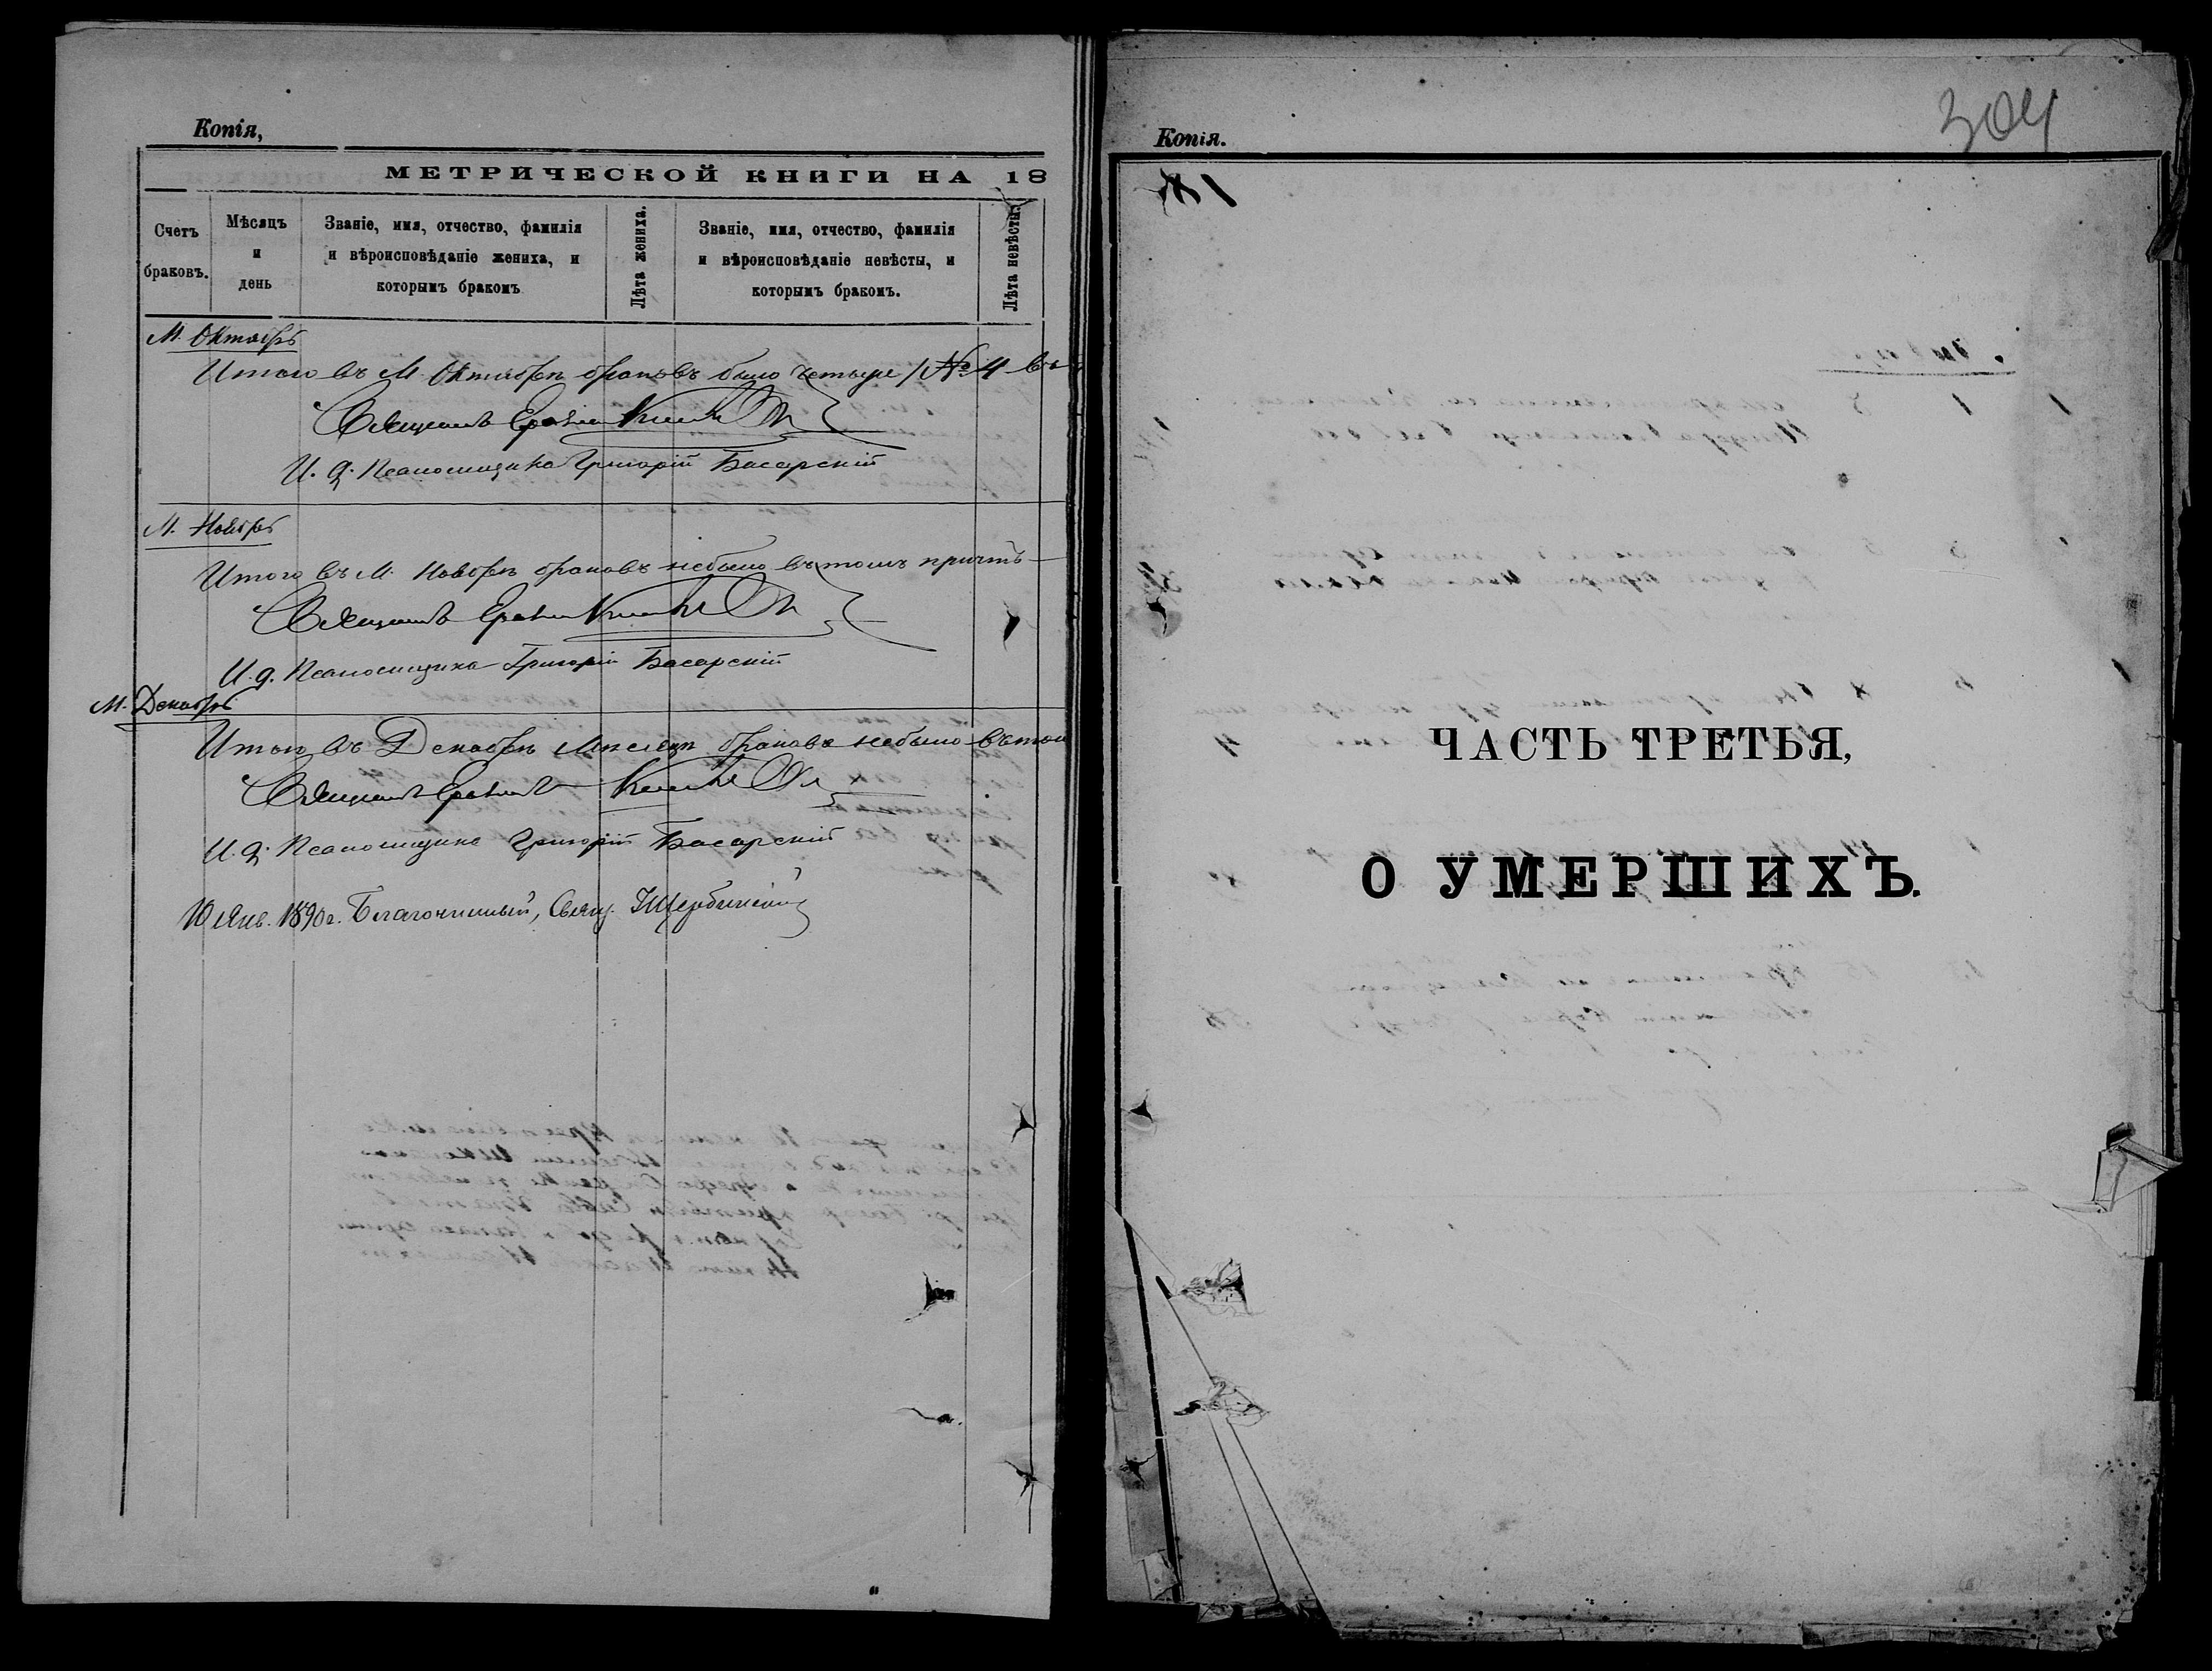 Копія,
МЕТРИЧЕСКОЙ КНИГИ НА 18
Счетъ браковъ.
Мѣсяцъ и день
Званіе, имя, отчество, фамилія и вѣроисповѣданіе жениха, и которымъ бракомъ
Лѣта жениха.
Званіе, имя, отчество, фамилія и вѣроисповѣданіе невѣсты, и которымъ бракомъ.
Лѣта невѣсты.
М. Октябрь
Итого въ М. Октябрѣ браковъ было четыре / № 4 въ
Священникъ
И. д. Псаломщика Григорій Басарскій
М. Ноябрь
Итого въ М. Ноябрѣ браковъ небыло въ томъ причтѣ
Священникъ
И. д. Псаломщика Григорій Басарскій
М. Декабрь
Итого въ Декабрѣ Мѣсяцѣ браковъ небыло въ том
Священникъ
И. д. Псаломщика Григорій Басарскій
10 Янв. 1890 г. Благочинный, Свящ. Щербинскій
Копія.
304
ЧАСТЬ ТРЕТЬЯ,
О УМЕРШИХЪ.